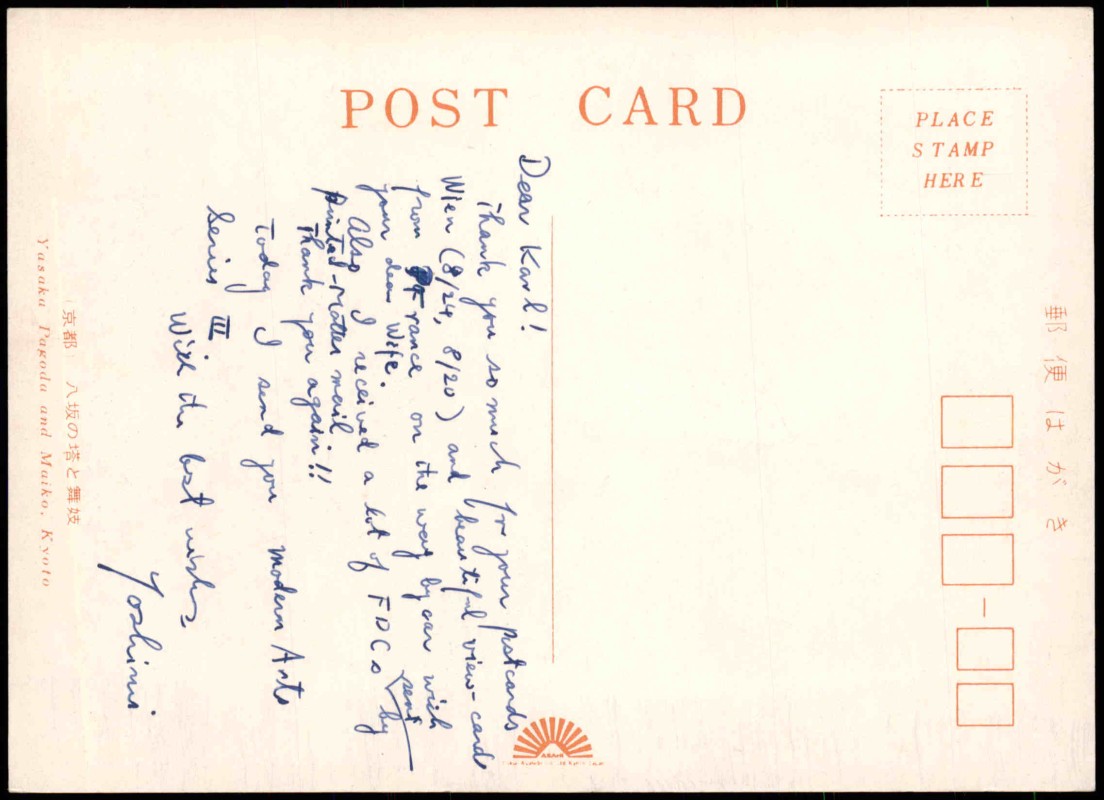 POST CARD
PLACE
STAMP
HERE
郵便はがき
Dear Karl!
Thank you so much for your postcards
Wien (8/24, 8/20) and beautiful view-card
from France on the way by car with
your dear Wife.
Also I received a lot of FDCs sent by
printed-matter mail.
Thank you again!!
Today I send you modern Arts
Series III.
With the best wishes
Yoshimi.
〔京都〕 八坂の塔と舞妓
Yasaka Pagoda and Maiko, Kyoto